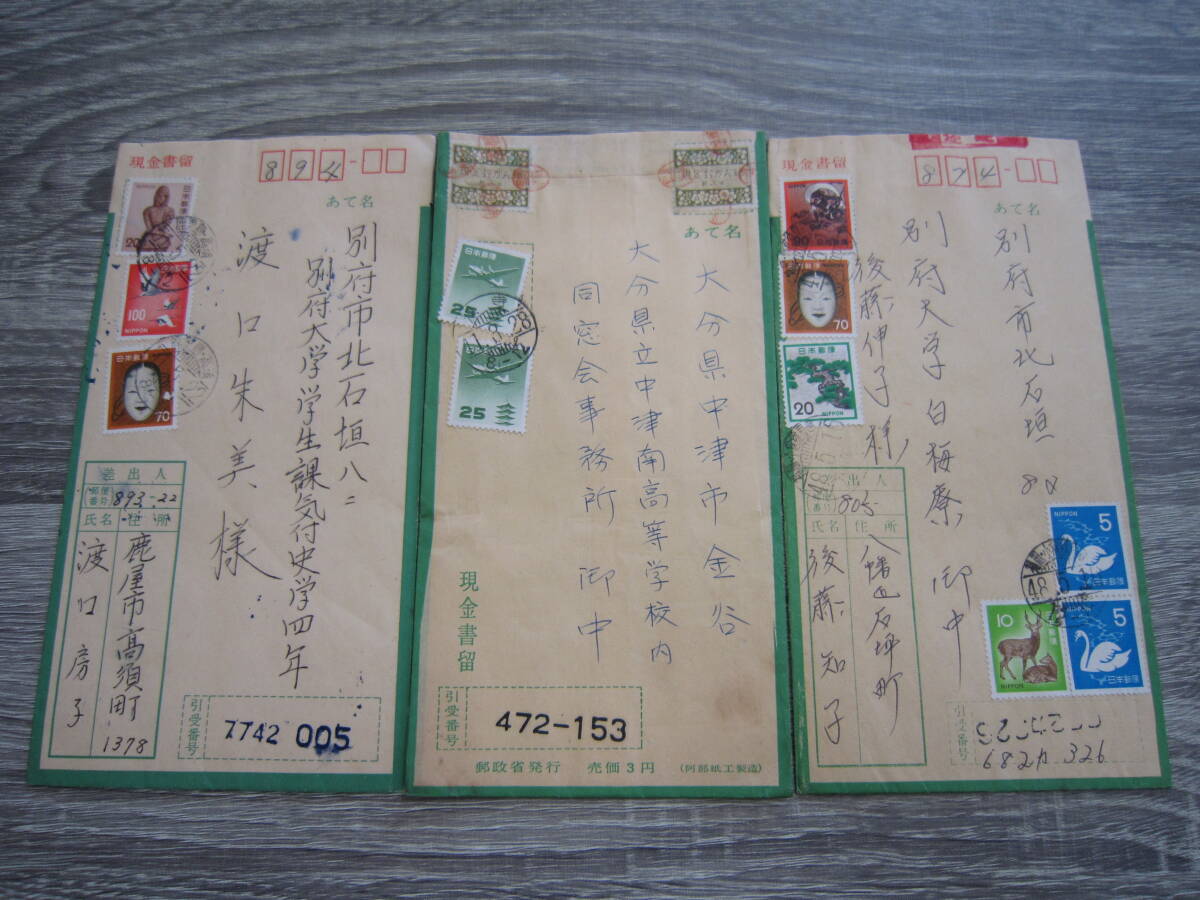 現金書留
894-
あて名
別府市北石垣八二
別府大学学生課気付史学四年
渡口朱美様
日本郵便
20
100
NIPPON
日本郵便
70
差出人
郵便番号
893-22
氏名 住所
鹿屋市高須町
1378
渡口房子
引受番号
7742 005
あて名
大分県中津市金谷
大分県立中津南高等学校内
同窓会事務所 御中
日本郵便
25
25
現金書留
引受番号
472-153
郵政省発行 売価3円 (阿部紙工製造)
現金書留
874-
あて名
別府市北石垣82
別府大学白梅寮 御中
後藤伸子様
NIPPON
90
日本郵便
70
日本郵便
20
NIPPON
出人
番号
805
氏名 住所
八幡区石坪町
後藤知子
NIPPON
5
日本郵便
NIPPON
5
日本郵便
10
NIPPON
48
引受番号
682
326